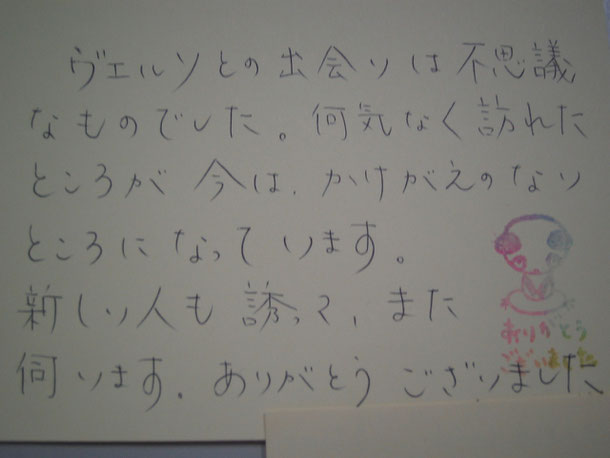 ヴェルソとの出会いは不思議
なものでした。何気なく訪れた
ところが 今は、かけがえのない
ところになっています。
新しい人も 誘って、また
伺います。ありがとう ございました
ありがとう
ございます